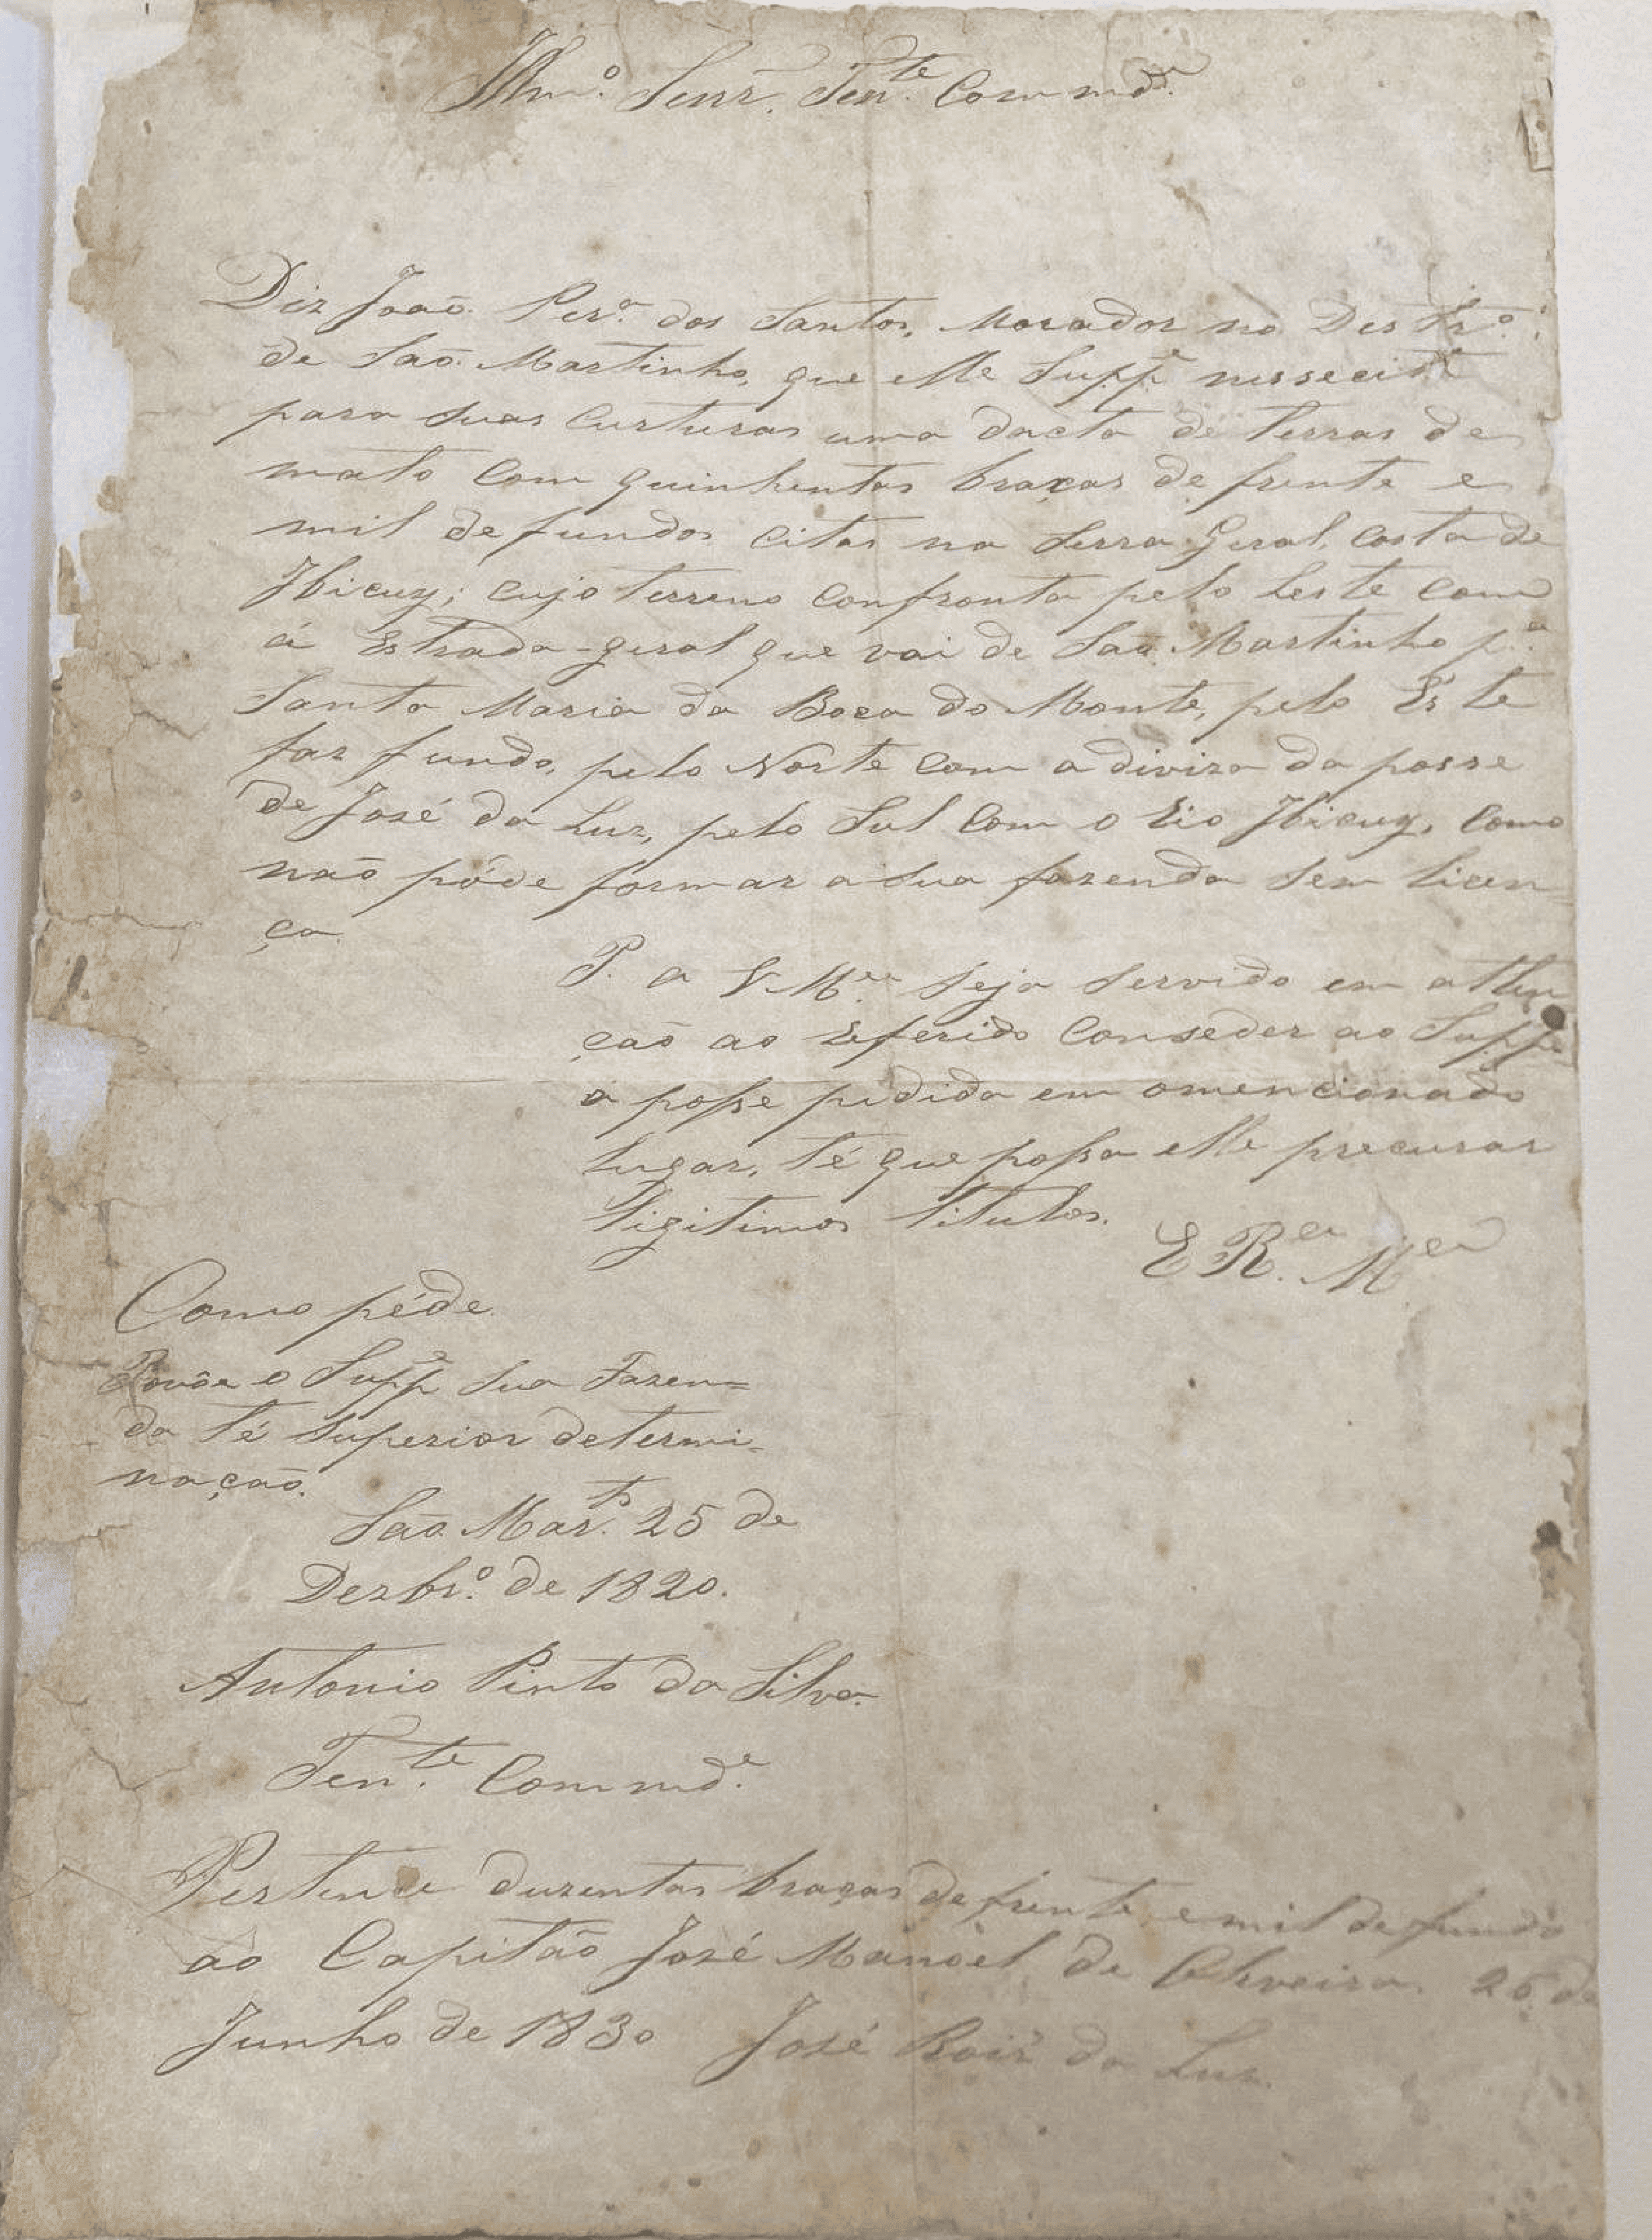 Illm.º Senr. Ten.te Commd.e
Diz João Per.ª dos Santos, Morador no Destr.º
de São Martinho, que elle Supp.e nessecita
para suas Curturas uma dacta de terras de
mato com quinhentas braças de frente e
mil de fundos citas na Serra Geral, Costa de
Ibicuy; cujo terreno confronta pelo Leste com
á Estrada-geral que vai de São Martinho p.ª
Santa Maria da Boca do Monte, pelo Éste
faz fundo, pelo Norte com a diviza da posse
de José da Luz, pelo Sul com o Rio Ibicuy, como
não póde formar a sua fazenda sem licen=
ça
P. a V. M.ce seja servido em atten
ção ao Referido Conseder ao Supp.e
a posse pidida em o mencionado
lugar, té que possa elle precurar
ligitimos titulos.
E R.ce M.ce
Como péde.
Povôe o Supp.e sua Fazen=
da té superior determi=
nação.
São Mar.to 25 de
Dezbr.º de 1820.
Antonio Pinto da Silva.
Ten.te Commd.e
Pertence duzentas braças de frente e mil de fundo
ao Capitão José Manoel de Oliveira. 26 de
Junho de 1830 José Roiz da Luz.